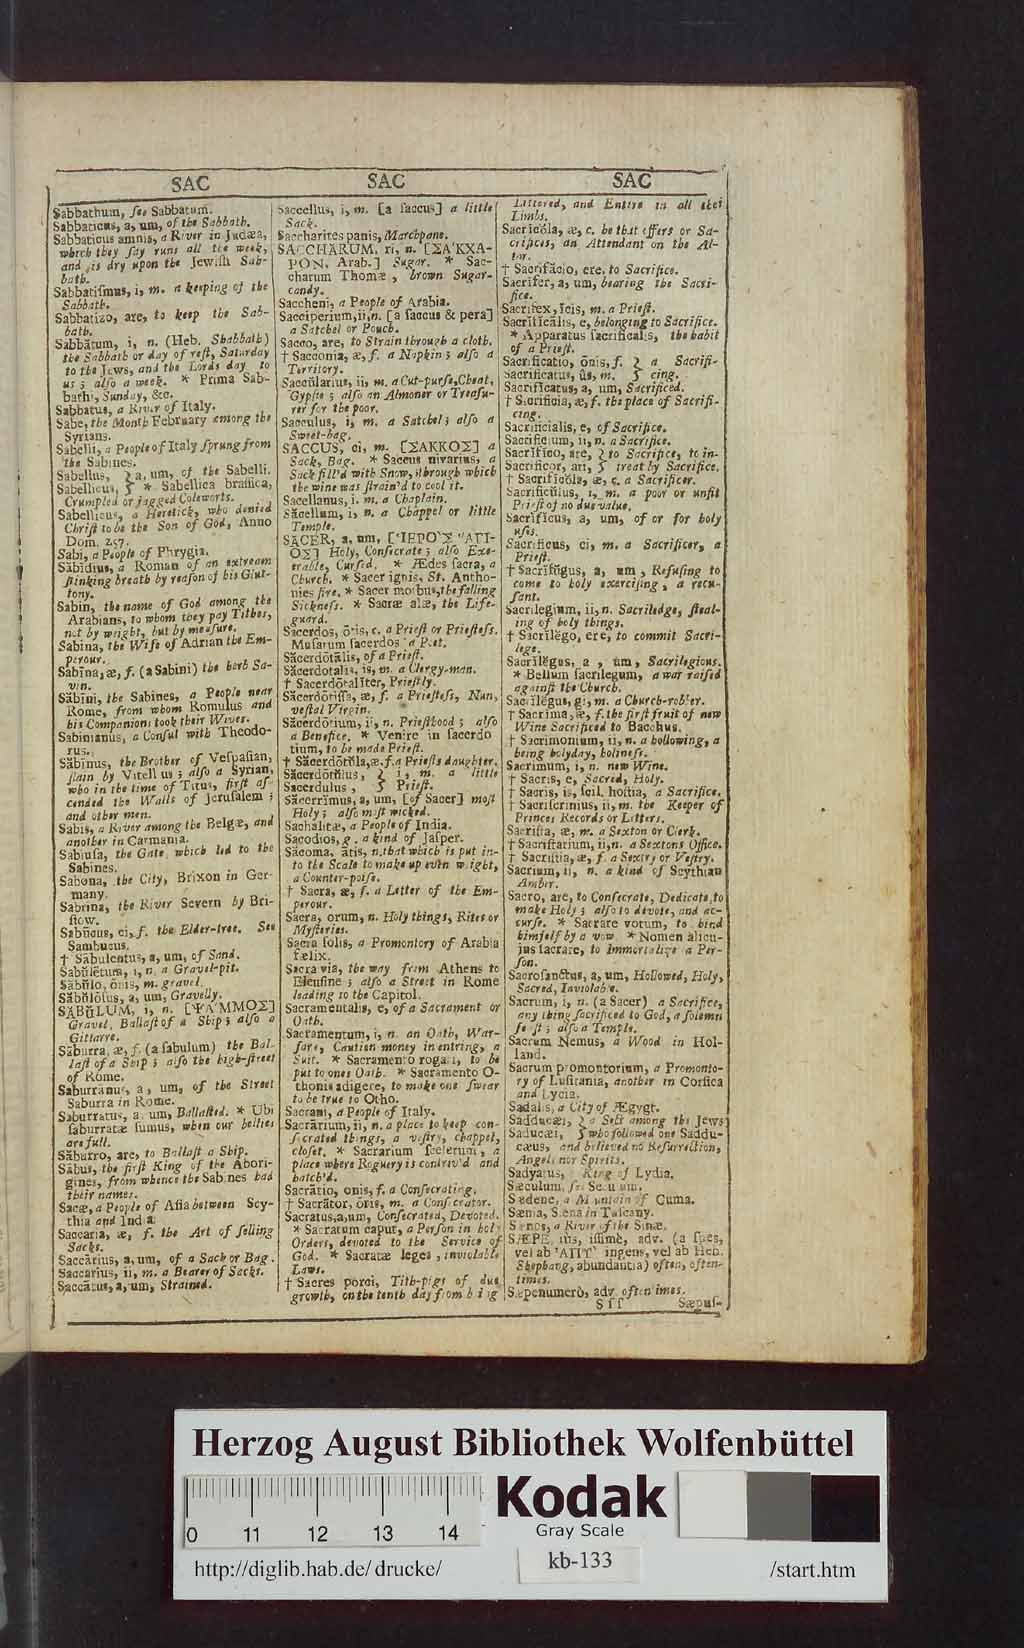 SAC
Sabbathum, ſee Sabbatum.
Sabbaticus, a, um, of the Sabbath.
Sabbaticus amnis, a River in Judæa,
which they ſay runs all the week,
and is dry upon the Jewiſh Sab-
bath.
Sabbatiſmus, i, m. a keeping of the
Sabbath.
Sabbatizo, are, to keep the Sab-
bath.
Sabbătum, i, n. (Heb. Shabbath)
the Sabbath or day of reſt, Saturday
to the Jews, and the Lords day to
us ; alſo a week. * Prima Sab-
bathi, Sunday, &c.
Sabbatus, a River of Italy.
Sabe, the Month February among the
Syrians.
Sabelli, a People of Italy ſprung from
the Sabines.
Sabellus, } a, um, of the Sabelli.
Sabellicus, } * Sabellica braſſica,
Crumpled or jagged Coleworts.
Sabellicus, a Heretick, who denied
Chriſt to be the Son of God, Anno
Dom. 257.
Sabi, a People of Phrygia.
Săbĭdius, a Roman of an extream
ſtinking breath by reaſon of his Glut-
tony.
Sabin, the name of God among the
Arabians, to whom they pay Tithes,
not by weight, but by meaſure.
Sabina, the Wife of Adrian the Em-
perour.
Sabīna, æ, f. (a Sabini) the herb Sa-
vin.
Săbīni, the Sabines, a People near
Rome, from whom Romulus and
his Companions took their Wives.
Sabinianus, a Conſul with Theodo-
rus.
Săbīnus, the Brother of Veſpaſian,
ſlain by Vitellius ; alſo a Syrian,
who in the time of Titus, firſt aſ-
cended the Walls of Jeruſalem ;
and other men.
Sabis, a River among the Belgæ, and
another in Carmania.
Sabiuſa, the Gate which led to the
Sabines.
Sabona, the City, Brixon in Ger-
many.
Sabrina, the River Severn by Bri-
ſtow.
Sabūcus, ci, f. the Elder-tree. See
Sambucus.
† Săbulentus, a, um, of Sand.
Sabŭlētum, i, n. a Gravel-pit.
Săbŭlo, ōnis, m. gravel.
Săbŭlōſus, a, um, Gravelly.
SĂBŬLUM, i, n. [ΨΑ΄ΜΜΟΣ]
Gravel, Ballaſt of a Ship ; alſo a
Gittarre.
Săburra, æ, f. (a ſabulum) the Bal-
laſt of a Ship ; alſo the high-ſtreet
of Rome.
Saburrānus, a, um, of the Street
Saburra in Rome.
Saburratus, a, um, Ballaſted. * Ubi
ſaburratæ ſumus, when our bellies
are full.
Săburro, are, to Ballaſt a Ship.
Săbus, the firſt King of the Abori-
gines, from whence the Sabines had
their names.
Sacæ, a People of Aſia between Scy-
thia and India.
Saccaria, æ, f. the Art of ſelling
Sacks.
Saccārius, a, um, of a Sack or Bag.
Saccarius, ii, m. a Bearer of Sacks.
Saccātus, a, um, Strained.
SAC
Saccellus, i, m. [a ſaccus] a little
Sack.
Saccharites panis, Marchpane.
SACCHARUM, ri, n. [ΣΑ΄ΚΧΑ-
ΡΟΝ, Arab.] Sugar. * Sac-
charum Thomæ, brown Sugar-
candy.
Saccheni, a People of Arabia.
Sacciperium, ii, n. [a ſaccus & pera]
a Satchel or Pouch.
Sacco, are, to Strain through a cloth.
† Sacconia, æ, f. a Napkin ; alſo a
Territory.
Saccŭlarius, ii, m. a Cut-purſe, Cheat,
Gypſie ; alſo an Almoner or Treaſu-
rer for the poor.
Sacculus, i, m. a Satchel ; alſo a
Sweet-bag.
SACCUS, ci, m. [ΣΑΚΚΟΣ] a
Sack, Bag. * Saccus nivarius, a
Sack fill'd with Snow, through which
the wine was ſtrain'd to cool it.
Sacellanus, i. m. a Chaplain.
Săcellum, i, n. a Chappel or little
Temple.
SĂCER, a, um, [ΊΕΡΟ΄Σ ΑΓΙ-
ΟΣ] Holy, Conſecrate ; alſo Exe-
crable, Curſed. * Ædes ſacra, a
Church. * Sacer ignis, St. Antho-
nies fire. * Sacer morbus, the falling
Sickneſs. * Sacræ alæ, the Life-
guard.
Sacerdos, ōtis, c. a Prieſt or Prieſteſs.
Muſarum ſacerdos a Poet.
Săcerdōtālis, of a Prieſt.
Săcerdotalis, is, m. a Clergy-man.
† Sacerdōtalĭter, Prieſtly.
Săcerdōtiſſa, æ, f. a Prieſteſs, Nun,
veſtal Virgin.
Săcerdōtium, ii, n. Prieſthood ; alſo
a Benefice. * Venire in ſacerdo
tium, to be made Prieſt.
† Săcerdōtŭla, æ, f. a Prieſts daughter.
Săcerdōtŭlus, } i, m. a little
Sacerdulus, } Prieſt.
Săcerrĭmus, a, um, [of Sacer] moſt
Holy ; alſo moſt wicked.
Sachalitæ, a People of India.
Sacodios, g. a kind of Jaſper.
Săcoma, ătis, n. that which is put in-
to the Scale to make up even weight,
a Counter-poiſe.
† Sacra, æ, f. a Letter of the Em-
perour.
Sacra, orum, n. Holy things, Rites or
Myſteries.
Sacra ſolis, a Promontory of Arabia
fœlix.
Sacra via, the way from Athens to
Eleuſine ; alſo a Street in Rome
leading to the Capitol.
Sacramentalis, e, of a Sacrament or
Oath.
Sacramentum, i, n. an Oath, War-
fare, Caution money in entring, a
Suit. * Sacramento rogari, to be
put to ones Oath. * Sacramento O-
thonis adigere, to make one ſwear
to be true to Otho.
Sacrani, a People of Italy.
Sacrārium, ii, n. a place to keep con-
ſecrated things, a veſtry, chappel,
cloſet. * Sacrarium ſcelerum, a
place where Roguery is contriv'd and
hatch'd.
Sacrātio, onis, f. a Conſecrating.
† Sacrātor, ōris, m. a Conſecrator.
Sacratus, a, um, Conſecrated, Devoted.
* Sacratum caput, a Perſon in holy
Orders, devoted to the Service of
God. * Sacratæ leges, inviolable
Laws.
† Sacres porci, Tith-pigs of due
growth, on the tenth day from being
SAC
Littered, and Entire in all their
Limbs.
Sacricŏla, æ, c. be that offers or Sa-
crifices, an Attendant on the Al-
tar.
† Sacrifăcio, ere, to Sacrifice.
Sacrifer, a, um, bearing the Sacri-
fice.
Sacrifex, ĭcis, m. a Prieſt.
Sacrĭficālis, e, belonging to Sacrifice.
* Apparatus ſacrificalis, the habit
of a Prieſt.
Sacrificatio, ōnis, f. } a Sacrifi-
Sacrificatus, ûs, m. } cing.
Sacrificatus, a, um, Sacrificed.
† Sacrificia, æ, f. the place of Sacrifi-
cing.
Sacrificialis, e, of Sacrifice.
Sacrificium, ii, n. a Sacrifice.
Sacrĭfico, are, } to Sacrifice, to in-
Sacrificor, ari, } treat by Sacrifice.
† Sacrificŏla, æ, c. a Sacrificer.
Sacrificŭlus, i, m. a poor or unfit
Prieſt of no due value.
Sacrĭfĭcus, a, um, of or for holy
uſes.
Sacrificus, ci, m. a Sacrificer, a
Prieſt.
† Sacrifŭgus, a, um, Refuſing to
come to holy exerciſing, a recu-
ſant.
Sacrilegium, ii, n. Sacriledge, ſteal-
ing of holy things.
† Sacrilĕgo, ere, to commit Sacri-
lege.
Sacrĭlĕgus, a, um, Sacrilegious.
* Bellum ſacrilegum, a war raiſed
againſt the Church.
Sacrilĕgus, gi, m. a Church-robber.
† Sacrima, æ, f. the firſt fruit of new
Wine Sacrificed to Bacchus.
† Sacrimonium, ii, n. a hollowing, a
being holyday, holineſs.
Sacrimum, i, n. new Wine.
† Sacris, e, Sacred, Holy.
† Sacris, is, ſcil. hoſtia, a Sacrifice.
† Sacriſcrinius, ii, m. the Keeper of
Princes Records or Letters.
Sacriſta, æ, m. a Sexton or Clerk.
† Sacriſtarium, ii, n. a Sextons Office.
† Sacriſtia, æ, f. a Sextry or Veſtry.
Sacrium, ii, n. a kind of Scythian
Amber.
Sacro, are, to Conſecrate, Dedicate, to
make Holy ; alſo to devote, and ac-
curſe. * Sacrare votum, to bind
himſelf by a vow. * Nomen alicu-
jus ſacrare, to Immortalize a Per-
ſon.
Sacroſanctus, a, um, Hollowed, Holy,
Sacred, Inviolable.
Sacrum, i, n. (a Sacer) a Sacrifice,
any thing ſacrificed to God, a ſolemn
feaſt ; alſo a Temple.
Sacrum Nemus, a Wood in Hol-
land.
Sacrum promontorium, a Promonto-
ry of Luſitania, another in Corſica
and Lycia.
Sadalis, a City of Ægypt.
Sadducæi, } a Sect among the Jews
Saducæi, } who followed one Saddu-
cæus, and believed no Reſurrection,
Angels nor Spirits.
Sadyatus, King of Lydia.
Sæculum, ſee Seculum.
Sædene, a Mountain of Cuma.
Sænia, Siena in Tuſcany.
Sænos, a River of the Sinæ.
SÆPE, iùs, iſſimè, adv. (a ſpes,
vel ab ΆΠΤ ingens, vel ab Heb.
Shephang, abundantia) often, often-
times.
Sæpenumerò, adv. often times.
Sſſ Sæpuſ-
Herzog August Bibliothek Wolfenbüttel
0 11 12 13 14
Kodak
Gray Scale
kb-133
http://diglib.hab.de/ drucke/ /start.htm